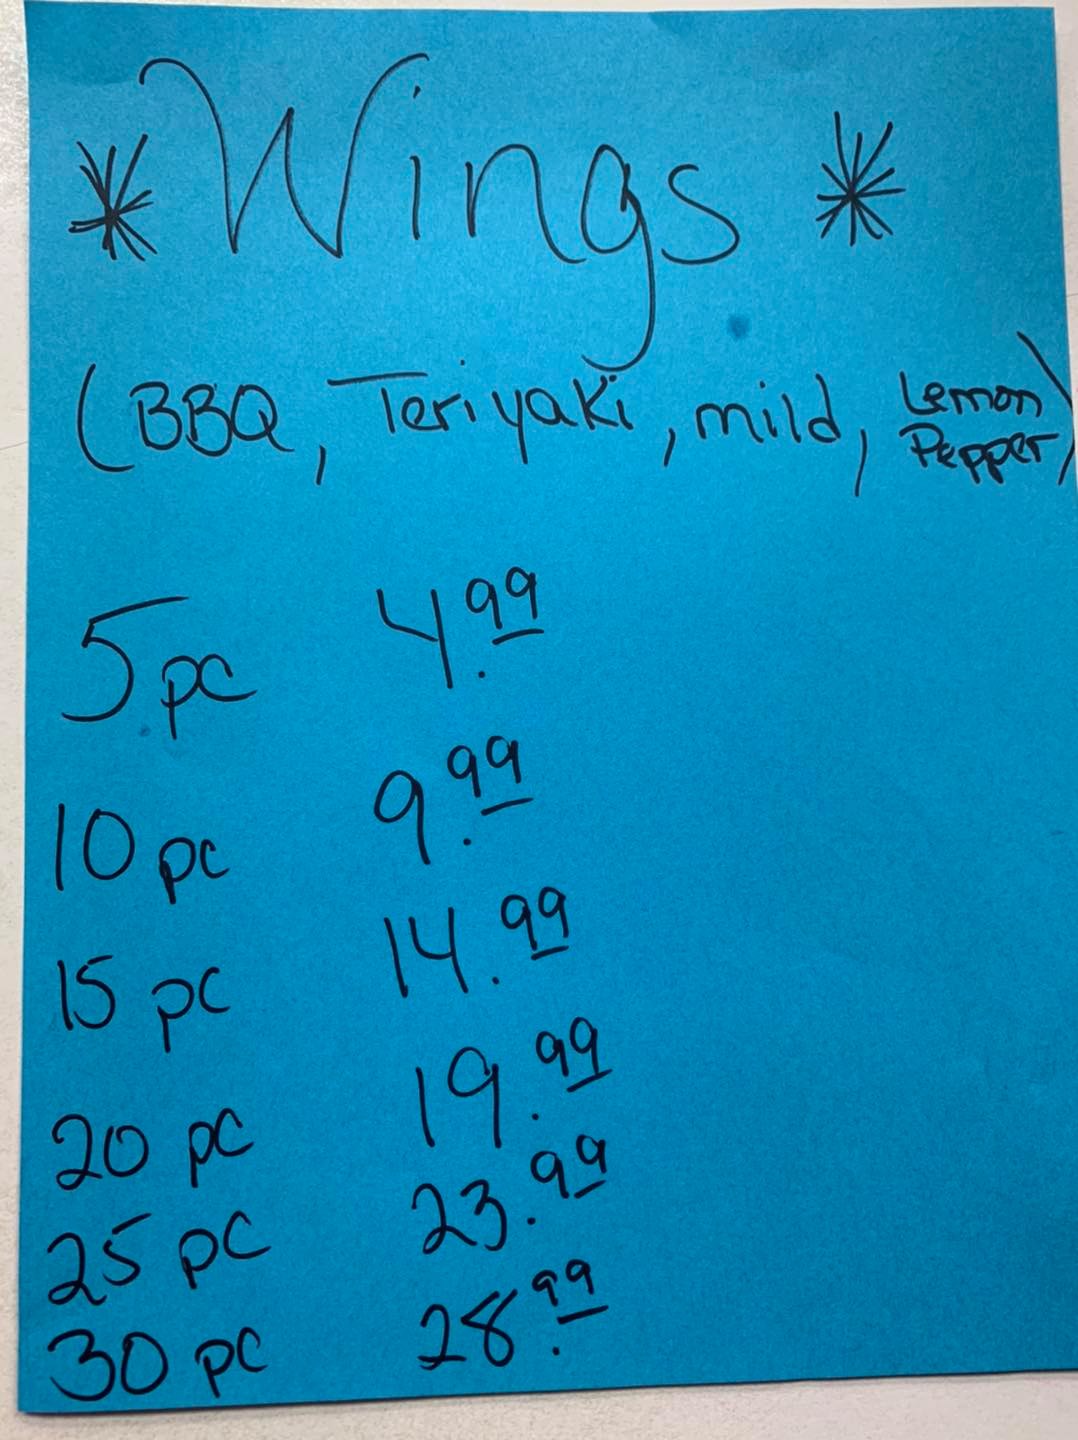 * Wings *
(BBQ, Teriyaki, mild, Lemon Pepper)
5 pc 4.99
10 pc 9.99
15 pc 14.99
20 pc 19.99
25 pc 23.99
30 pc 28.99